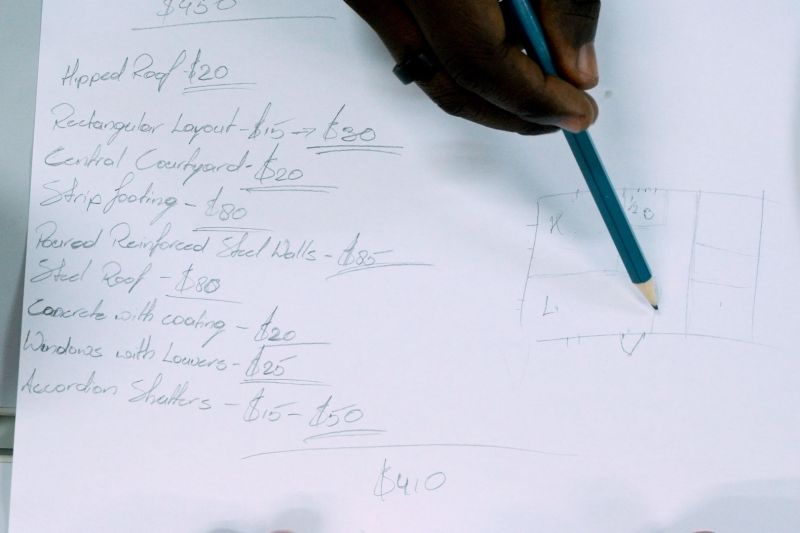 $450
Hipped Roof - $20
Rectangular Layout - $15 → $30
Central Courtyard - $20
Strip footing - $80
Poured Reinforced Steel Walls - $85
Steel Roof - $80
Concrete with coating - $20
Windows with Louvers - $25
Accordion Shutters - $15 - $50
$410
K
L